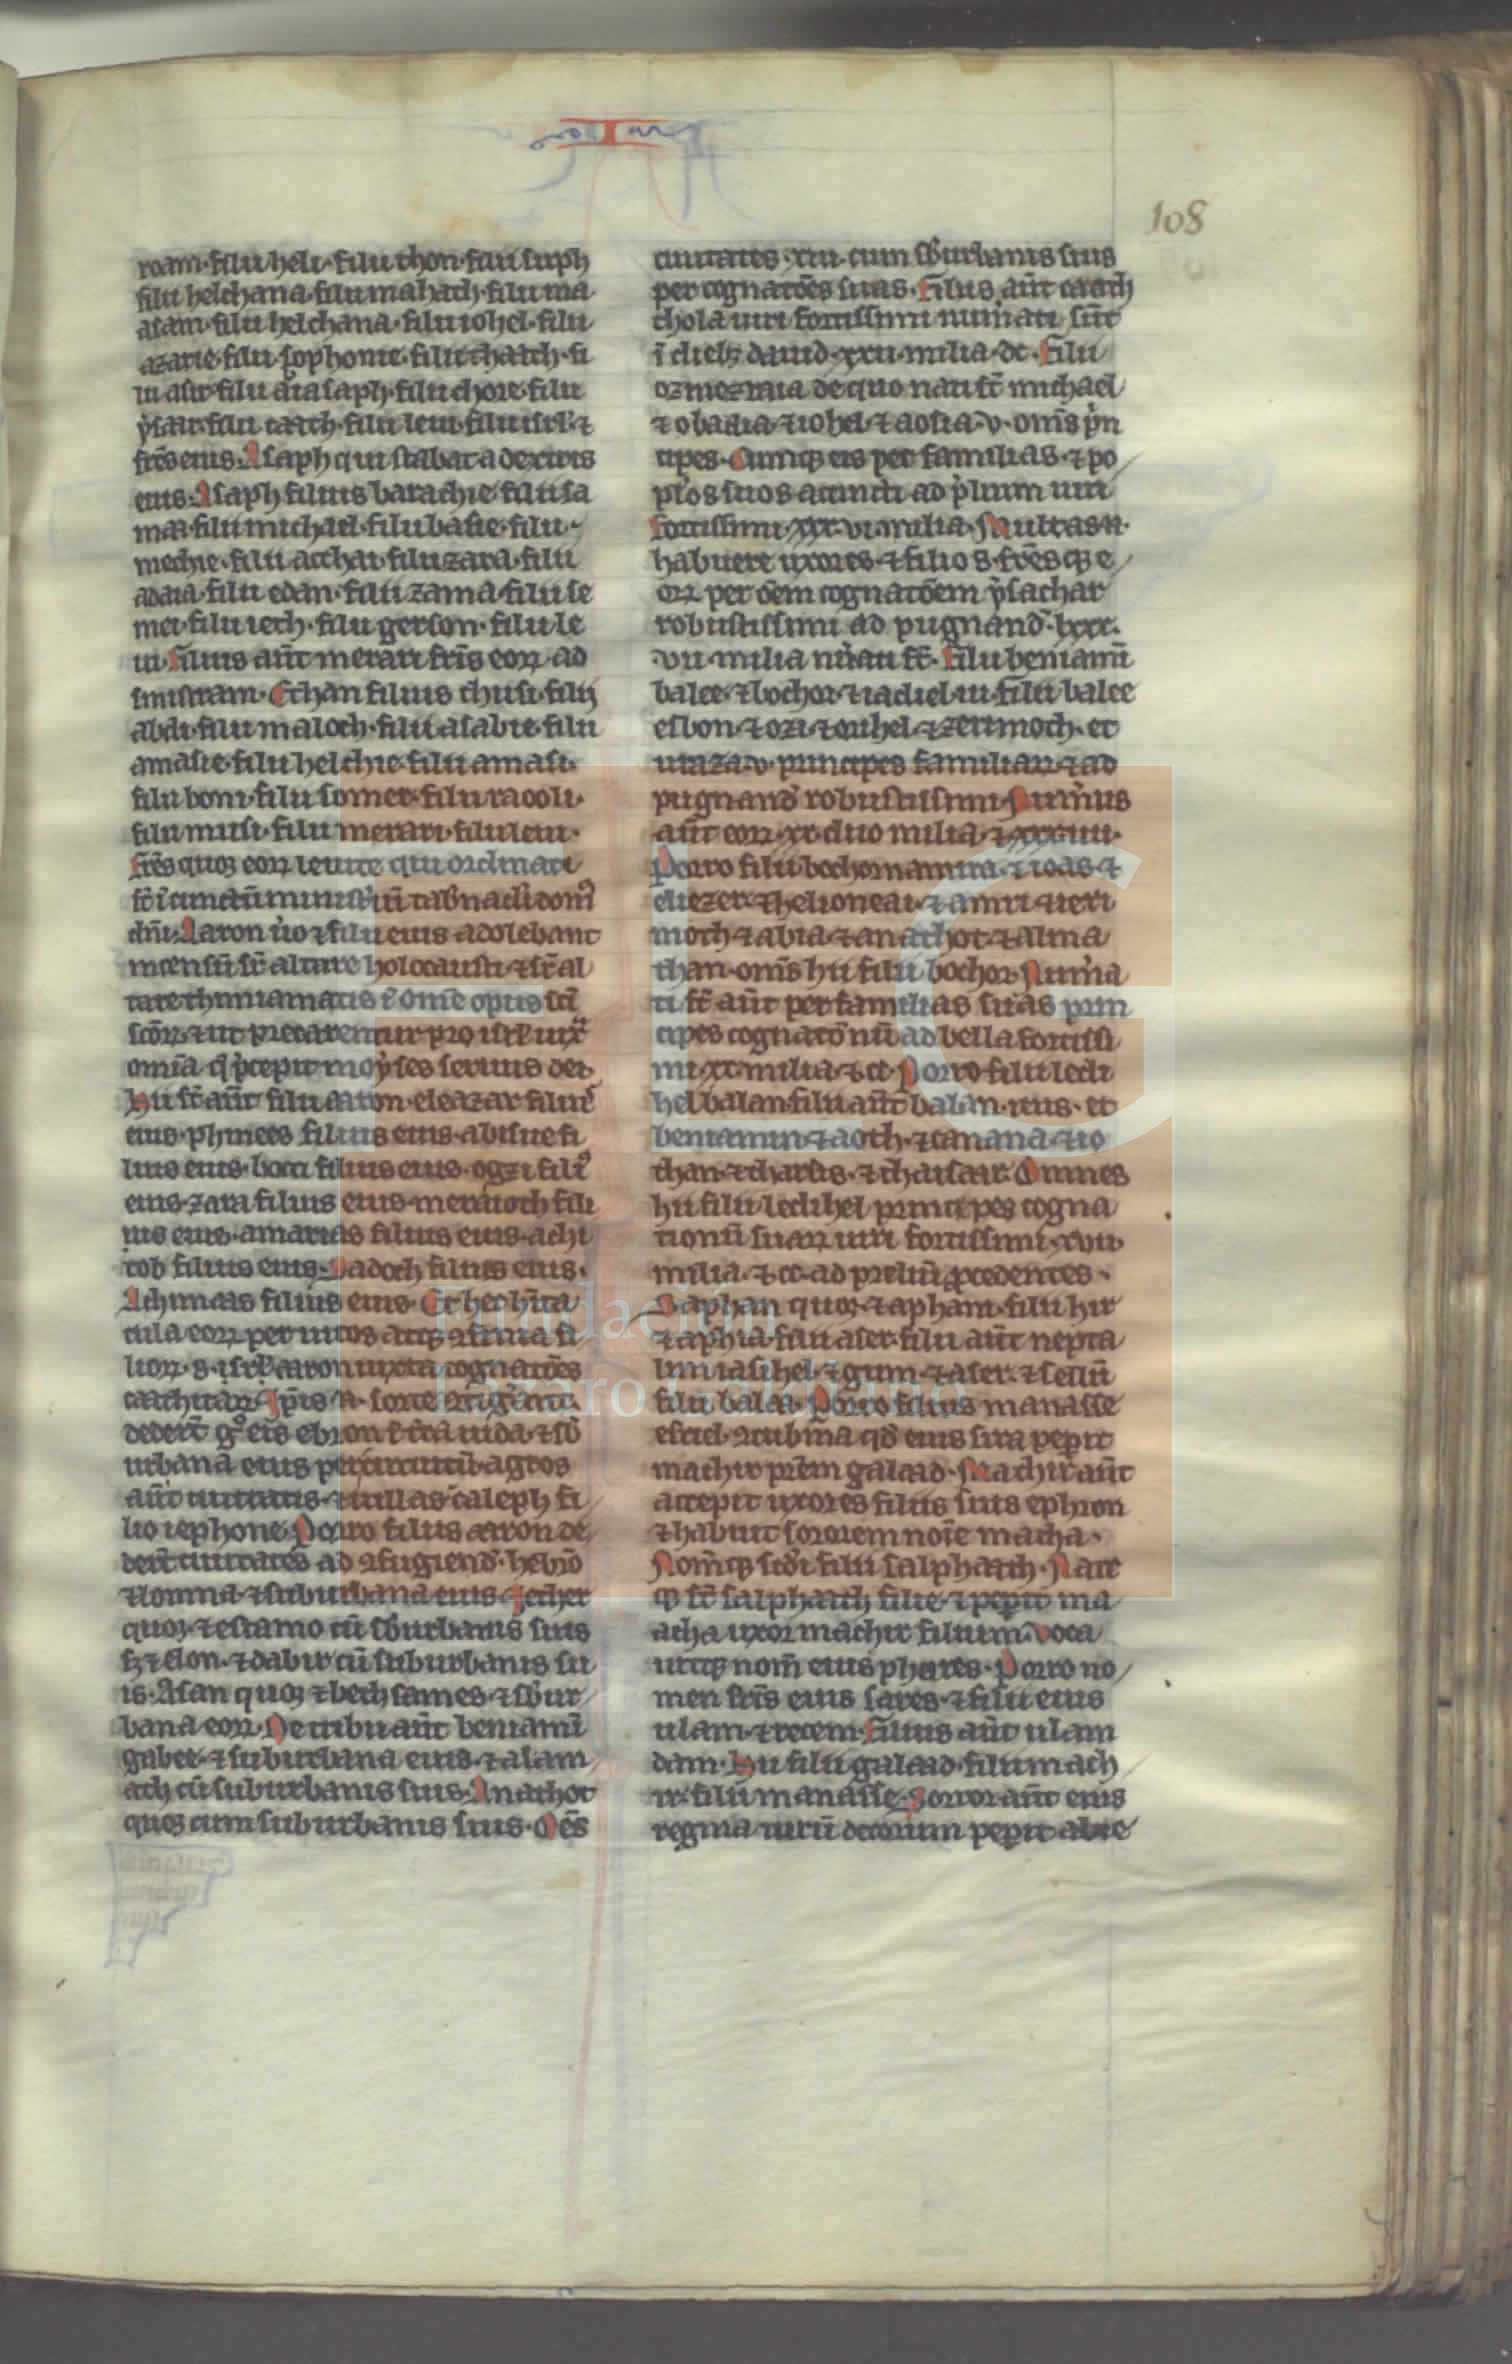 I
108
roam · filii heli · filii thou · filii suph
filii helchana · filii mahath · filii ma
asam · filii helchana · filii iohel · filii
azarie · filii sophonie · filii thaath · fi
lii asir · filii abiasaph · filii chore · filii
ysaar · filii caath · filii leui · filii isrl' · ⁊
frēs eius · Asaph qui stabat a dextris
eius · Asaph filius barachie filii sa
maa · filii michael · filii basie · filii
mechie · filii atthai · filii zara · filii
adaia · filii edan · filii zama · filii se
mei · filii ieth · filii gerson · filii le
ui · Filius aūt merari frīs eoꝝ · ad
sinistram · Ethan filius chusi · filij
abdi · filii maloch · filii asabie · filii
amasie · filii helchie · filii amasi ·
filii boni · filii somer · filii mooli ·
filii musi · filii merari · filii leui ·
frēs quoꝫ eoꝝ leuite qui ordinati
dn̄i · Aaron ūo ⁊ filii eius adolebant
incensū sr̄ altare holocausti · ⁊ sr̄ al
tare thimiamatis ī ōme opus scī
scōꝝ · ⁊ ut precarentur pro isrl' iuxᵃ
omīa q̄ p̄cepit moyses seruus dei
Hii st̄ aūt filii aaron · eleazar filiuˢ
eius · phinees filius eius · abisue fi
lius eius · bocci filius eius · ogzi filiˀ
eius · zara filius eius · meraioth fili
us eius · amarias filius eius · achi
tob filius eius · Sadoch filius eius ·
Achimaas filius eius · Et hec hīta
cula eoꝝ per uicos atqꝫ ꝯfinia fi
lioꝝ · s · aaron iuxta cognatōes
caathitaꝝ · Ip̄is n̄ · sorte ꝯtigerant ·
dedert̄ gͦ eis ebron ī tr̄a iuda · ⁊ sb̄
urbana eius per circuitū · agros
aūt ciuitatis · ⁊ uillas caleph fi
lio iephone · Porro filiis aaron de
dert̄ ciuitates ad ꝯfugiend' · hebrō
⁊ lomna · ⁊ suburbana eius · Iether
quoꝫ · ⁊ estamo cū sb̄urbanis suis
sꝫ ⁊ elon · ⁊ dabir cū suburbanis su
is · Asan quoꝫ ⁊ bethsames · ⁊ sb̄ur
bana eoꝝ · De tribu aūt beniamī
gabee · ⁊ suburbana eius · ⁊ alam
ath cū suburbanis suis · Anathot
quoꝫ cum suburbanis suis · Oēs
ciuitates · xiii · cum sb̄urbanis suis
per cognatōes suas · Filiis aūt caath
thola uiri fortissimi num̄ati sūt
ī dieb; dauid · xxii · milia · dc · Filii
ozi iezraia de quo nati st̄ michael
⁊ obadia · ⁊ iohel · ⁊ aosia · v · om̄s p̄n
cipes · Cumqꝫ eis per familias · ⁊ po
pl'os suos accincti ad p̄lium uiri
fortissimi · xxx · vi · milia · Multas n̄ ·
habuere uxores · ⁊ filios · frēsqꝫ e
oꝝ per ōem cognatōem ysachar
robustissimi ad pugnand' · lxxx ·
vii · milia nūati st̄ · Filii beniamī
balee · ⁊ bochor · ⁊ iadiel · iii · Filii balee
esbon · ⁊ ozi · ⁊ ozihel · ⁊ zerimoth · et
uiaza · v · principes familiaꝝ · ⁊ ad
pugnand' robustissimi · Num̄us
aūt eoꝝ · xx · duo milia · ⁊ xxxiiii ·
Porro filii bochor namira · ⁊ ioas · ⁊
eliezer · ⁊ helioneai · ⁊ amri · ⁊ ieri
moth · ⁊ abia · ⁊ anathot · ⁊ alma
than · om̄s hii filii bochor · Num̄a
ti st̄ aūt per familias suas prin
cipes cognatōnū ad bella fortissi
mi · xx · milia · ⁊ cc · Porro filii ledi
hel balan · filii aūt balan · ieus · et
beniamin · ⁊ aoth · ⁊ canana · ⁊ io
than · ⁊ tharsis · ⁊ thaisaar · Omnes
hii filii ledihel principes cogna
tionū suaꝝ uiri fortissimi · xvii ·
milia · ⁊ cc · ad preliū ꝓcedentes ·
Saphan quoꝫ · ⁊ apham · filii hir
⁊ aphia · filii aser · filii aūt nepta
lim iasihel · ⁊ guni · ⁊ aser · ⁊ sellū
filii balaa · Porro filius manasse
esriel · ꝯcubina qd̄ eius sira peꝑit
machir pr̄em galaad · Machir aūt
accepit uxores filiis suis ephron
⁊ habuit sororem noīe macha ·
Nom̄qꝫ scd̄i filii salphaath · Nate
qꝫ st̄ salphaath filie · ⁊ peꝑit ma
acha uxor machir filium · Voca
uitqꝫ nom̄ eius phares · Porro no
men frīs eius sares · ⁊ filii eius
ulam · ⁊ recem · Filius aūt ulam
dam · Hii filii galaad · filii mach
ir · filii manasse · Soror aūt eius
regina uirū decorum peꝑit abie
FLG
Fundación
Lázaro Galdiano